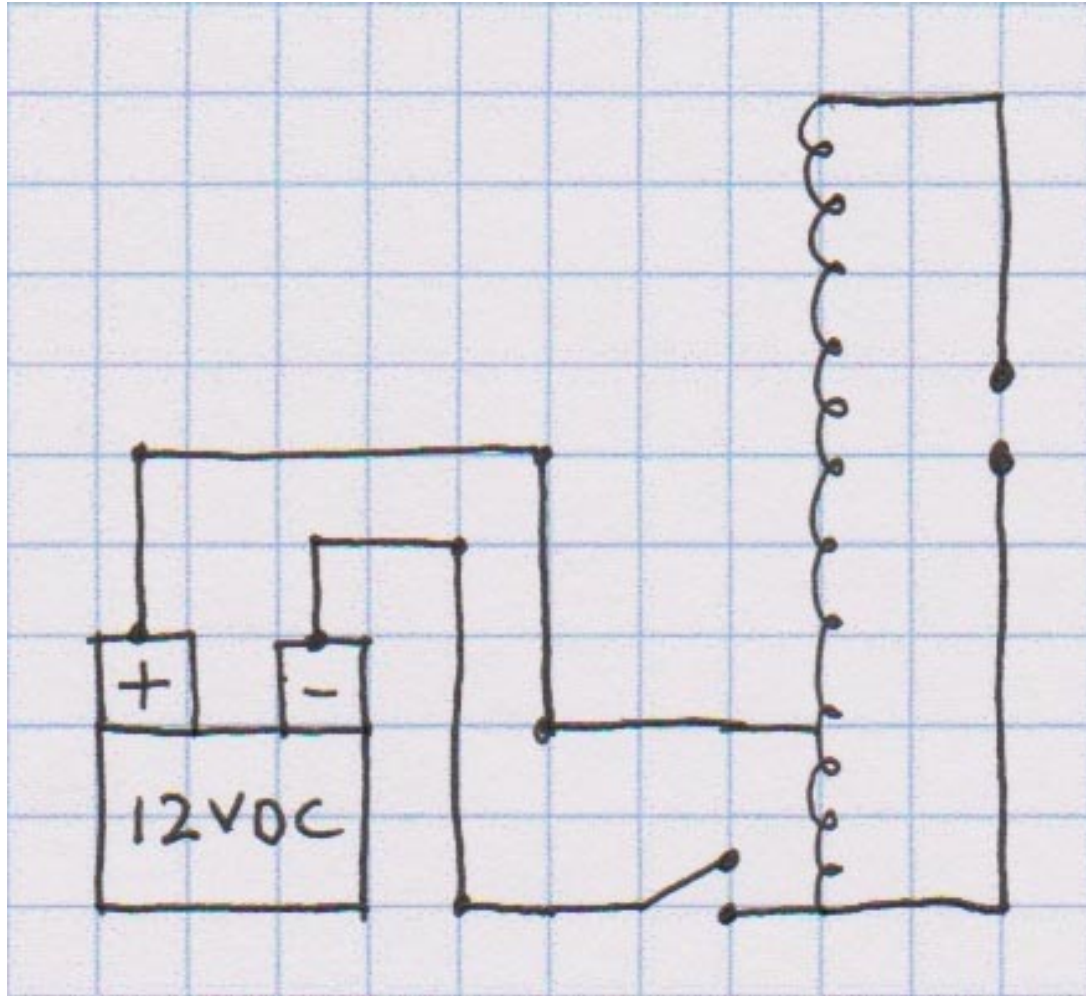 + -
12VDC